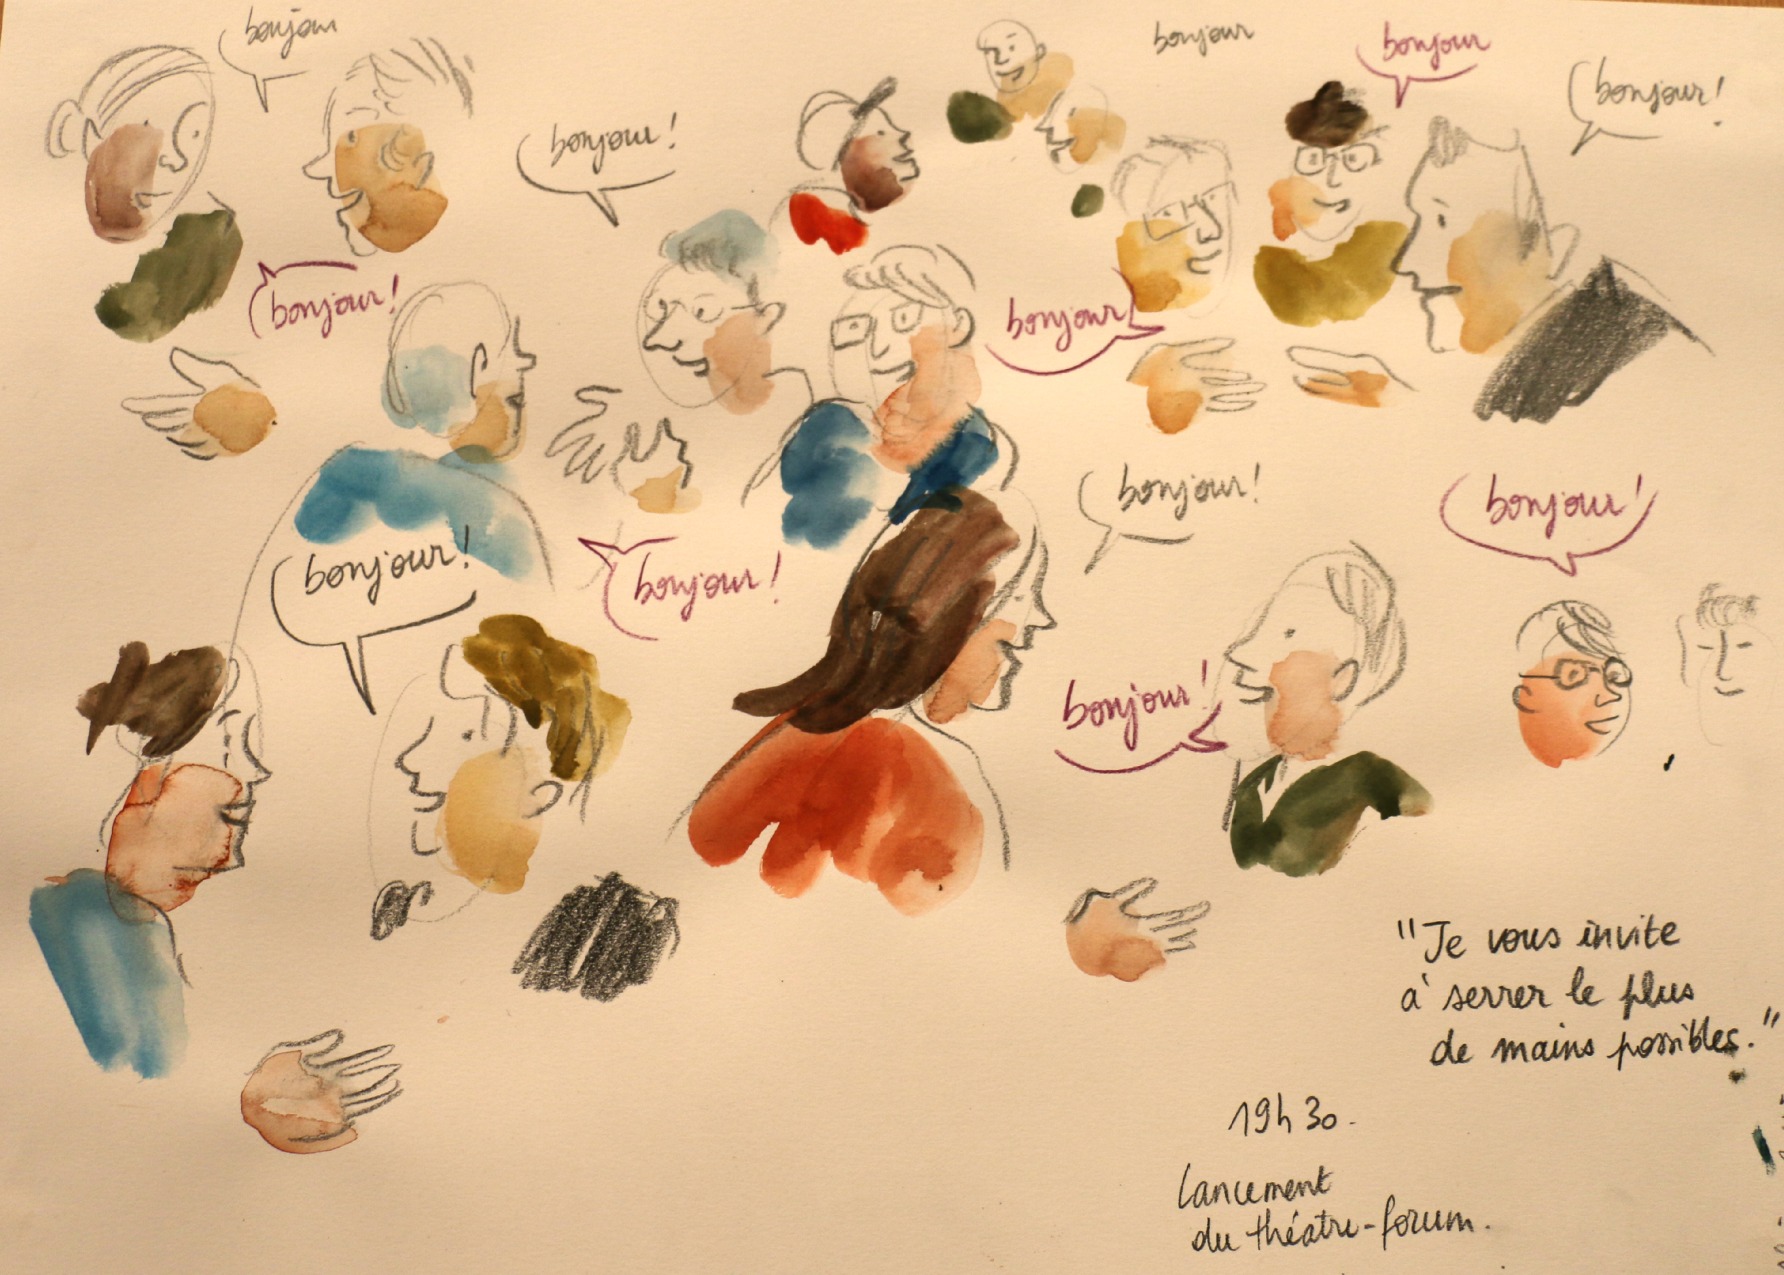 bonjour
bonjour
bonjour
bonjour!
bonjour!
bonjour!
bonjour
bonjour!
bonjour!
bonjour!
bonjour!
bonjour!
"Je vous invite
à serrer le plus
de mains possibles."
19h30.
Lancement
du théatre-forum.